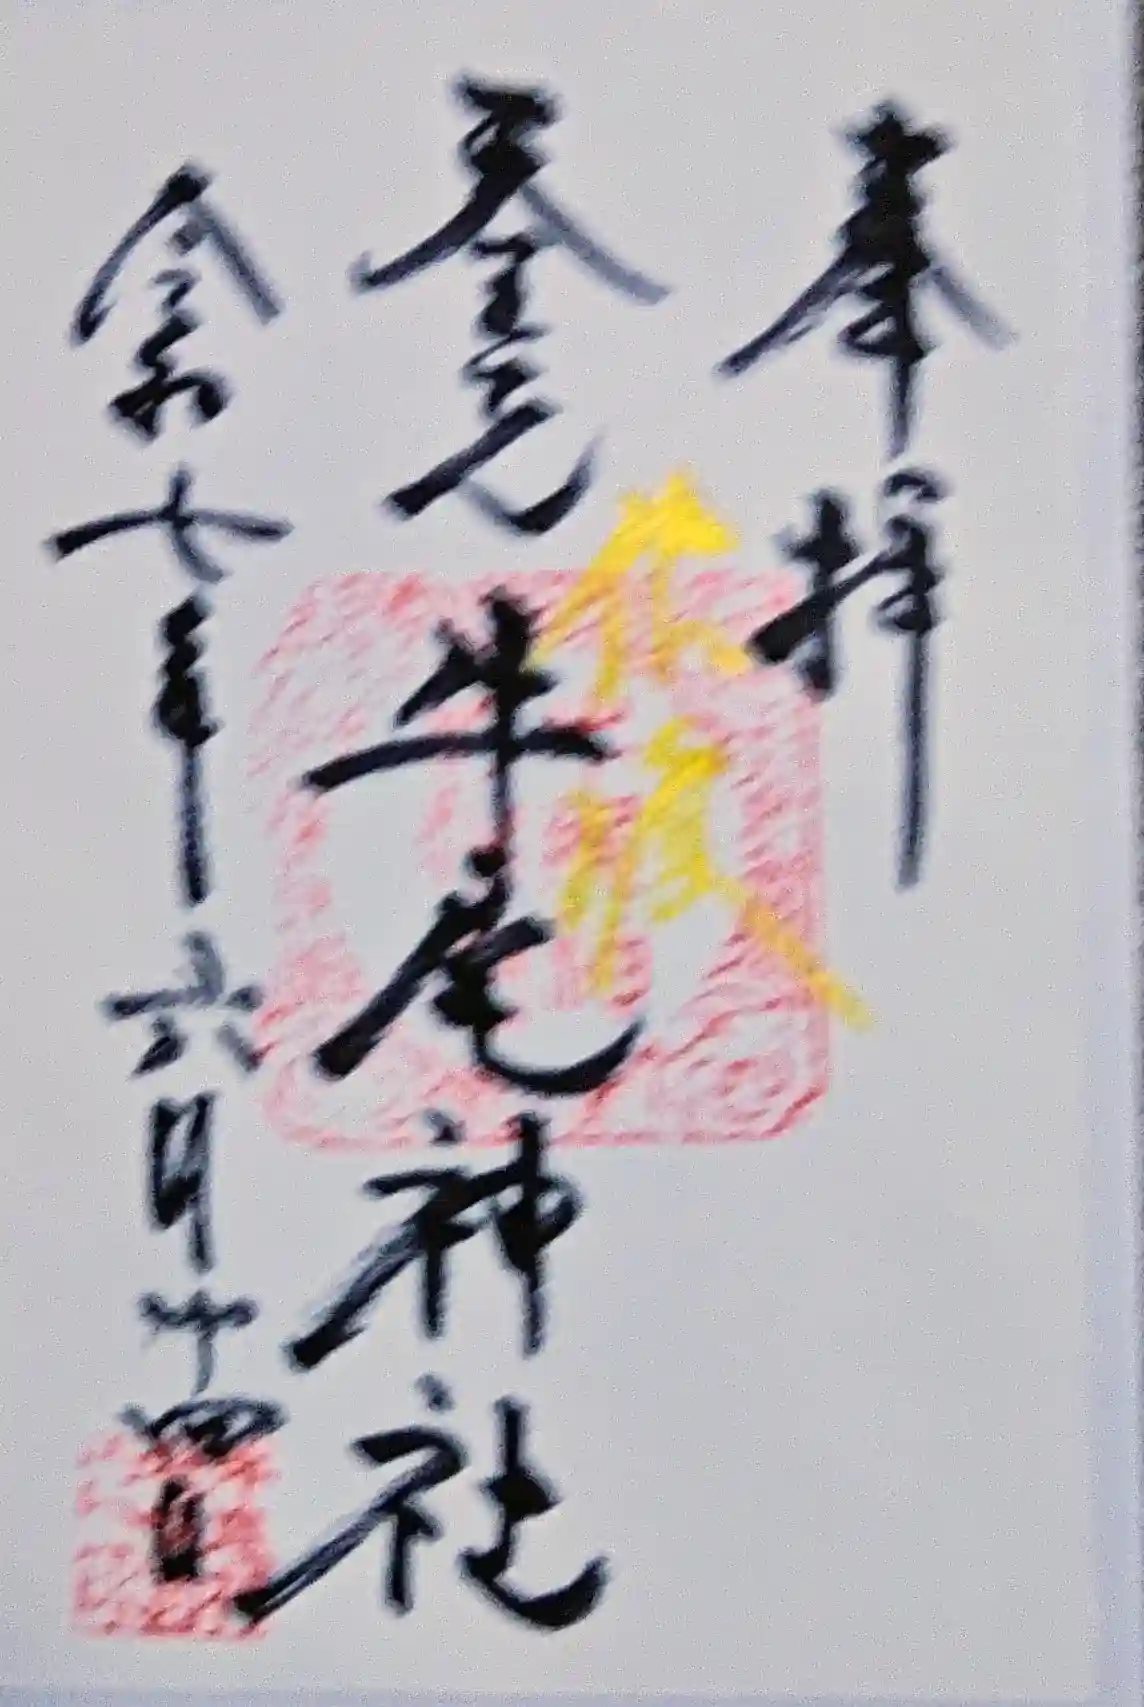 奉拝
天王 牛尾神社
令和七年六月十四日